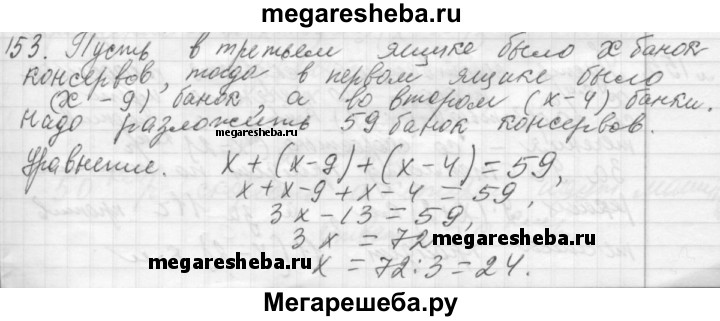 megaresheba.ru
153. Пусть в третьем ящике было x банок
консервов, тогда в первом ящике было
(x - 9) банок, а во втором (x - 4) банки.
Надо разложить 59 банок консервов.
megaresheba.ru
Уравнение. x + (x - 9) + (x - 4) = 59,
x + x - 9 + x - 4 = 59,
3x - 13 = 59,
3x = 72
megaresheba.ru
x = 72 : 3 = 24.
Мегарешеба.ру